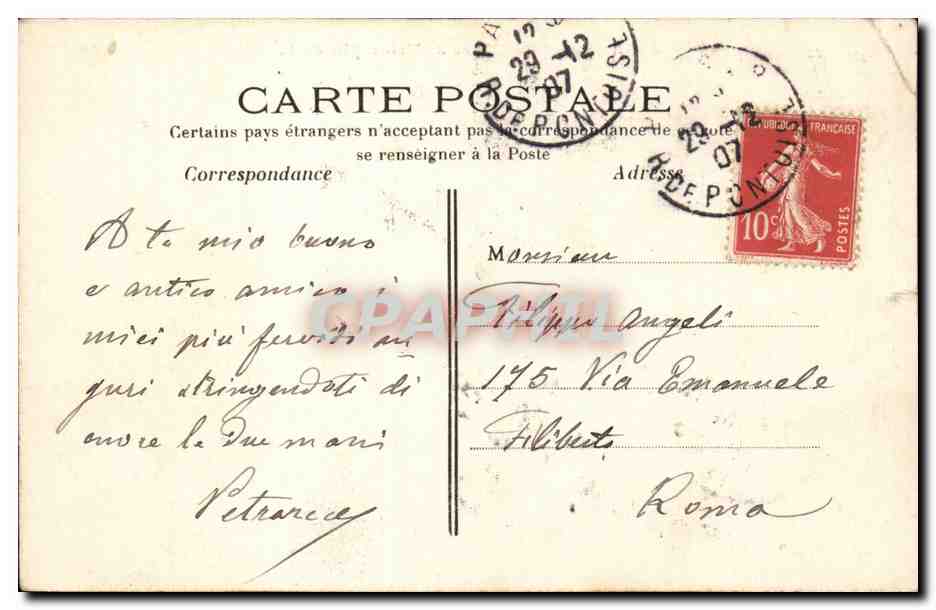 CARTE POSTALE
Certains pays étrangers n'acceptant pas la correspondance de
se renseigner à la Poste
Correspondance
Adresse
A te mio buono
e antico amico i
miei più fervidi au
guri stringendoti di
cuore le due mani
Petrarca
Monsieur
Filippo Angeli
175 Via Emanuele
Filiberto
Roma
29 -12
07
R. DE PONTHIST
29 -12
07
R. DE PONT
REPUBLIQUE FRANÇAISE
10c
POSTES
CPAPHIL